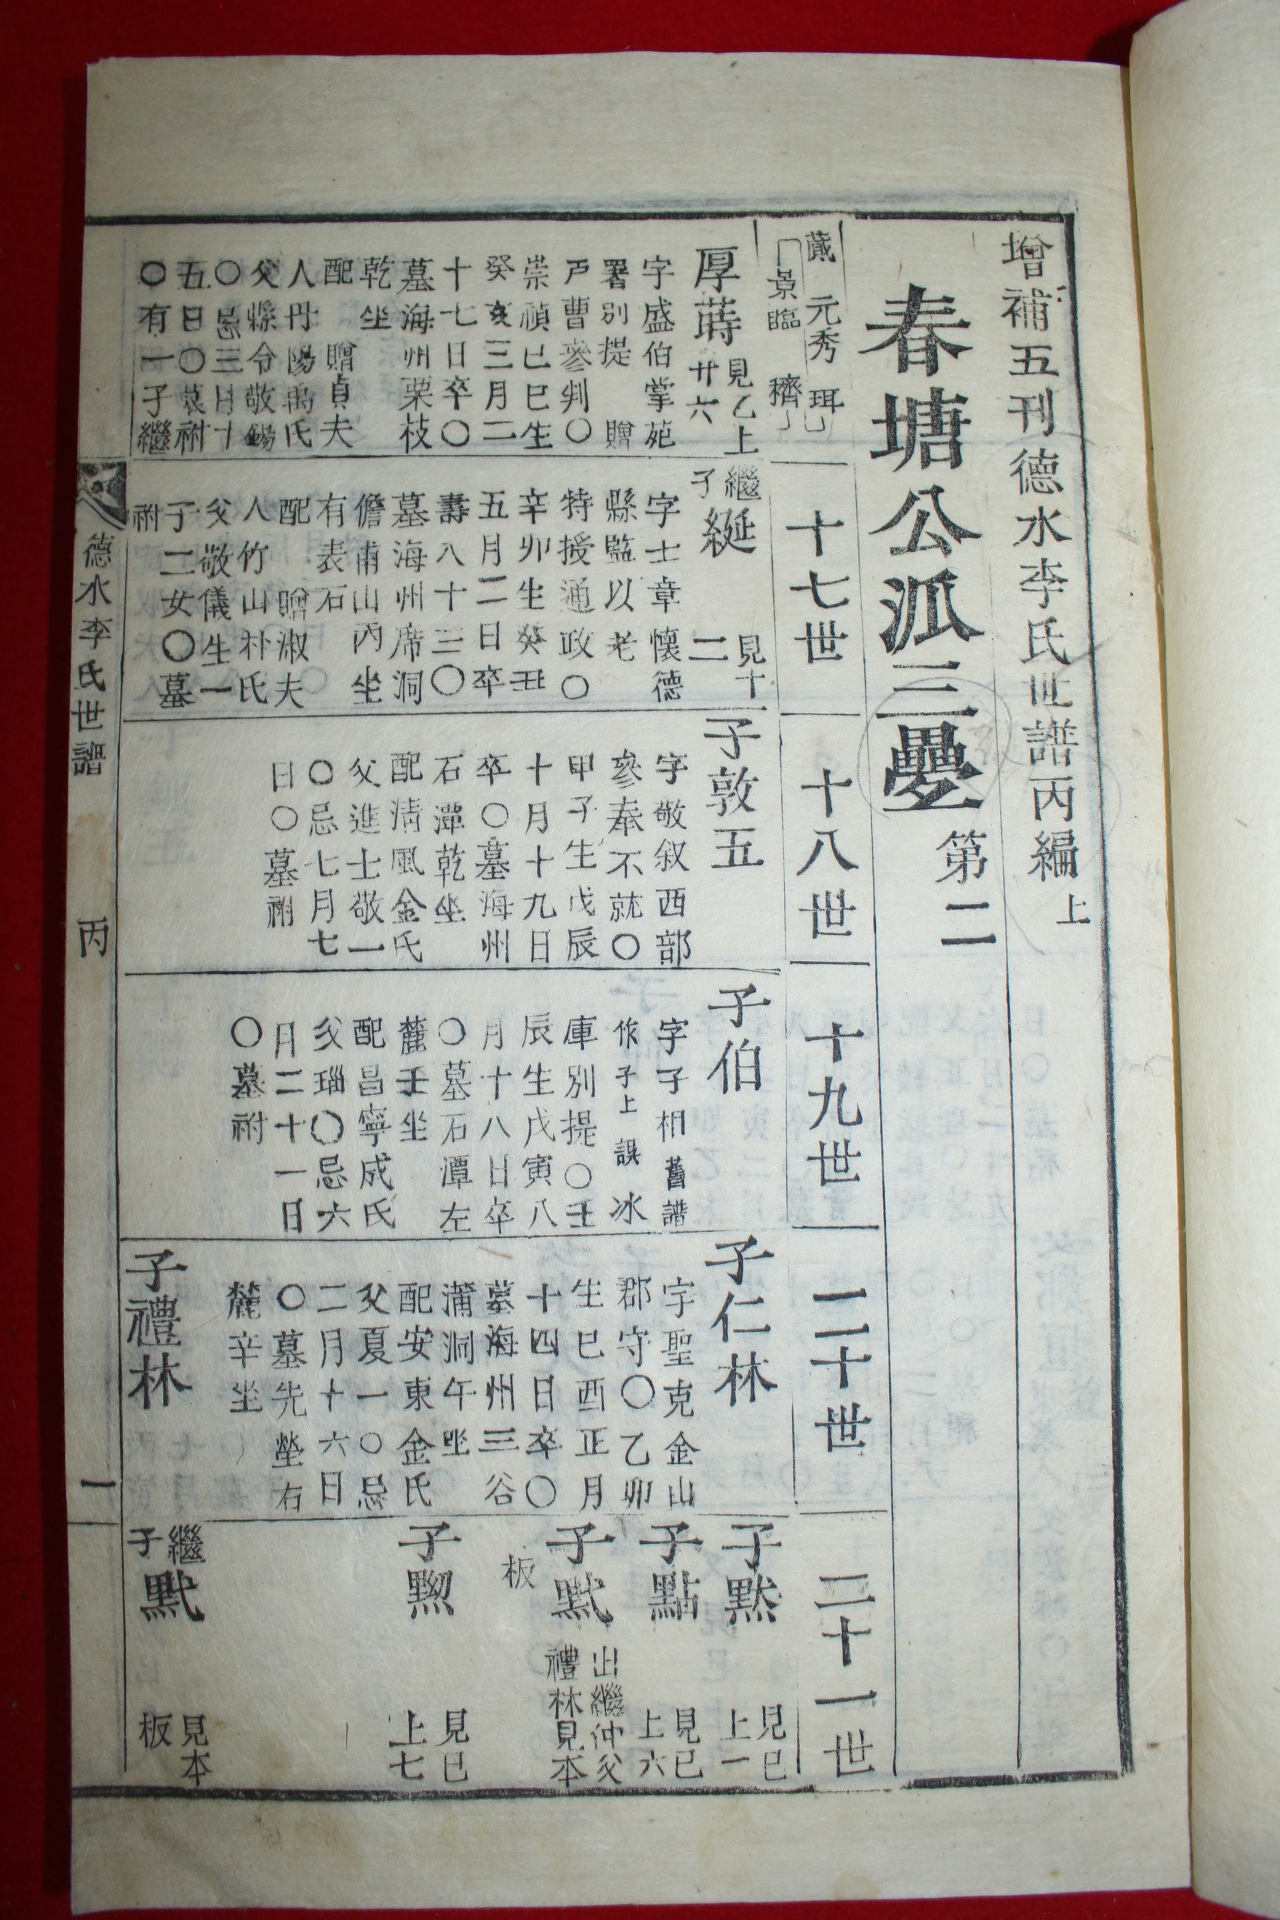 增補五刊德水李氏世譜丙編上
春塘公派三疊第二
蕆 元秀 珥
景臨 穧
十七世
十八世
十九世
二十世
二十一世
厚蒔 見乙上
廿六
字盛伯掌苑
署別提 贈
戶曹參判○
崇禎己巳生
癸亥三月二
十七日卒○
墓海州栗枝
乾坐
配 贈貞夫
人丹陽禹氏
父縣令敬錫
○忌三月十
五日○墓祔
○有一子繼
繼子綖 見十
二
字士章懷德
縣監以老
特授通政○
辛卯生癸丑
五月二日卒
壽八十三○
墓海州席洞
僉甫山丙坐
有表石
配 贈淑夫
人竹山朴氏
父敬儀生一
子二女○墓
祔
子敦五
字敬叙西部
參奉不就○
甲子生戊辰
十月十九日
卒○墓海州
石潭乾坐
配清風金氏
父進士敬一
○忌七月七
日○墓祔
子伯
字子相舊譜
作子上誤 冰
庫別提○壬
辰生戊寅八
月十八日卒
○墓石潭左
麓壬坐
配昌寧成氏
父瑙○忌六
月二十一日
○墓祔
子仁林
字聖克金山
郡守○乙卯
生己酉正月
十四日卒○
墓海州三谷
蒲洞午坐
配安東金氏
父夏一○忌
二月十六日
○墓先塋右
麓辛坐
子禮林
子黙 見巳
上一
子點 見巳
上六
子䵝 出繼仲父
禮林見本
板
子㸃 見巳
上七
繼子䵝 見本
板
德水李氏世譜
丙
一